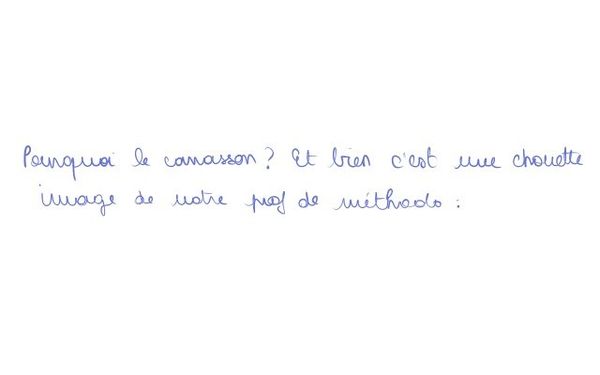 Pourquoi le canasson ? Et bien c'est une chouette
image de notre prof de méthodo :